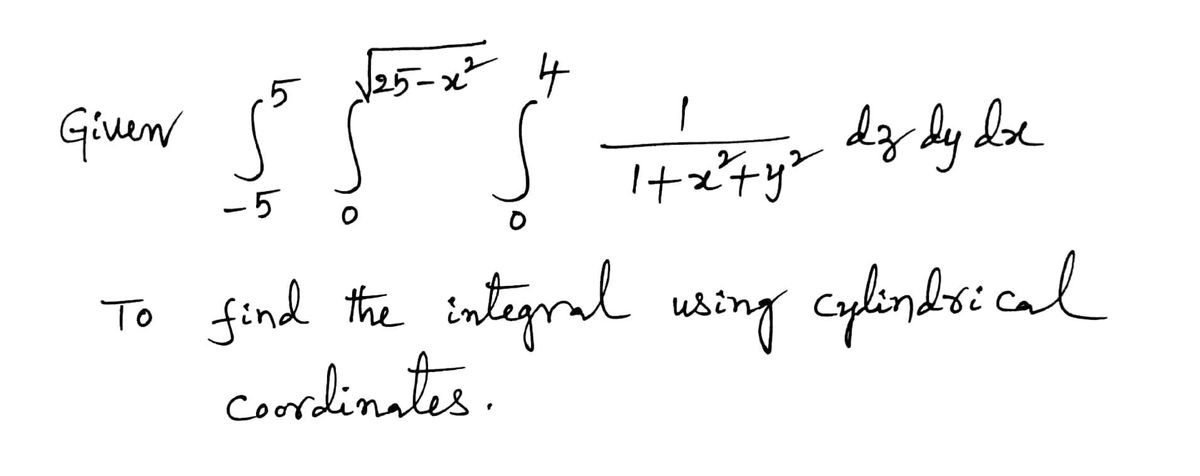 Given ∫_{-5}^{5} ∫_{0}^{√(25-x²)} ∫_{0}^{4} 1/(1+x²+y²) dz dy dx
To find the integral using cylindrical
coordinates.